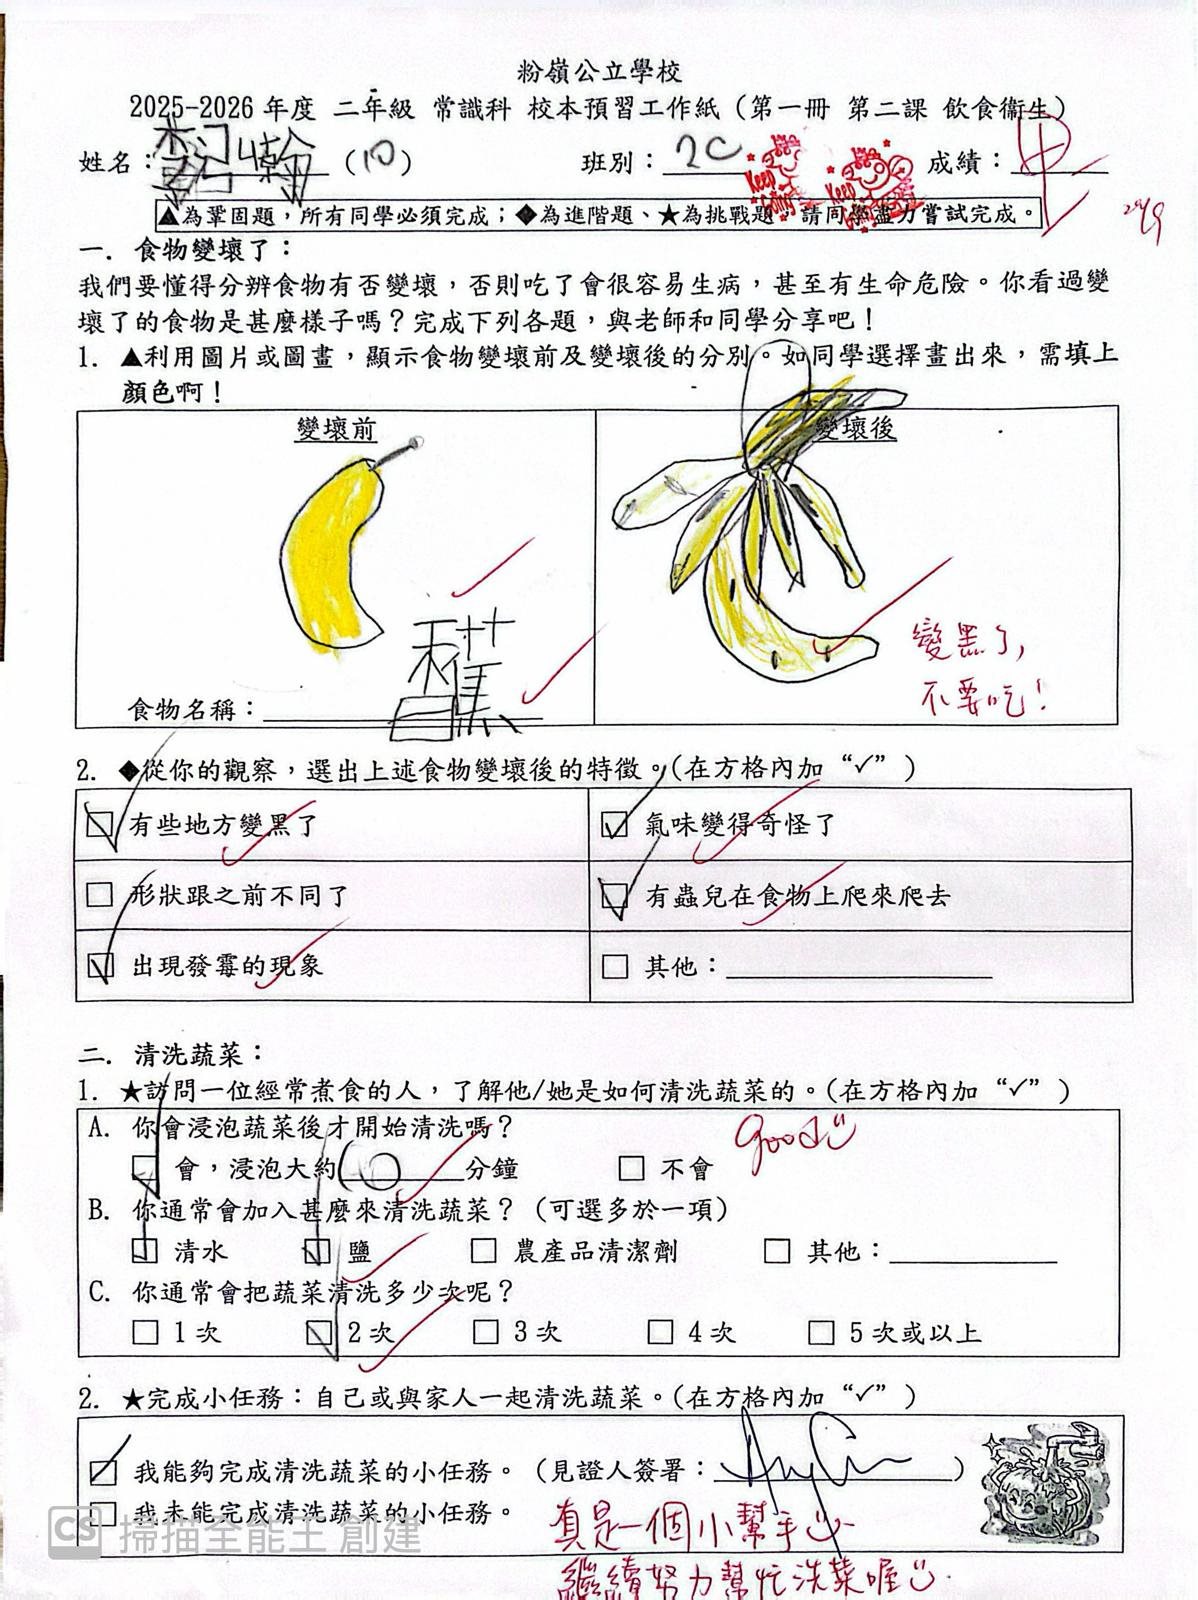 粉嶺公立學校
2025-2026 年度 二年級 常識科 校本預習工作紙（第一冊 第二課 飲食衞生）
姓名：（10） 班別：2C 成績：
Keep Going Keep Going
▲為鞏固題，所有同學必須完成；◆為進階題、★為挑戰題，請同學盡力嘗試完成。
一. 食物變壞了：
我們要懂得分辨食物有否變壞，否則吃了會很容易生病，甚至有生命危險。你看過變
壞了的食物是甚麼樣子嗎？完成下列各題，與老師和同學分享吧！
1. ▲利用圖片或圖畫，顯示食物變壞前及變壞後的分別。如同學選擇畫出來，需填上
顏色啊！
變壞前 變壞後
變黑了，
不要吃！
食物名稱：香蕉
2. ◆從你的觀察，選出上述食物變壞後的特徵。(在方格內加 “✓” )
☑ 有些地方變黑了 ☑ 氣味變得奇怪了
☐ 形狀跟之前不同了 ☑ 有蟲兒在食物上爬來爬去
☑ 出現發霉的現象 ☐ 其他：
二. 清洗蔬菜：
1. ★訪問一位經常煮食的人，了解他/她是如何清洗蔬菜的。(在方格內加 “✓” )
A. 你會浸泡蔬菜後才開始清洗嗎？ good
☑ 會，浸泡大約10分鐘 ☐ 不會
B. 你通常會加入甚麼來清洗蔬菜？（可選多於一項）
☑ 清水 ☑ 鹽 ☐ 農產品清潔劑 ☐ 其他：
C. 你通常會把蔬菜清洗多少次呢？
☐ 1 次 ☑ 2 次 ☐ 3 次 ☐ 4 次 ☐ 5 次或以上
2. ★完成小任務：自己或與家人一起清洗蔬菜。(在方格內加 “✓” )
☑ 我能夠完成清洗蔬菜的小任務。（見證人簽署：）
☐ 我未能完成清洗蔬菜的小任務。
真是一個小幫手
繼續努力幫忙洗菜喔
CS 掃描全能王 創建